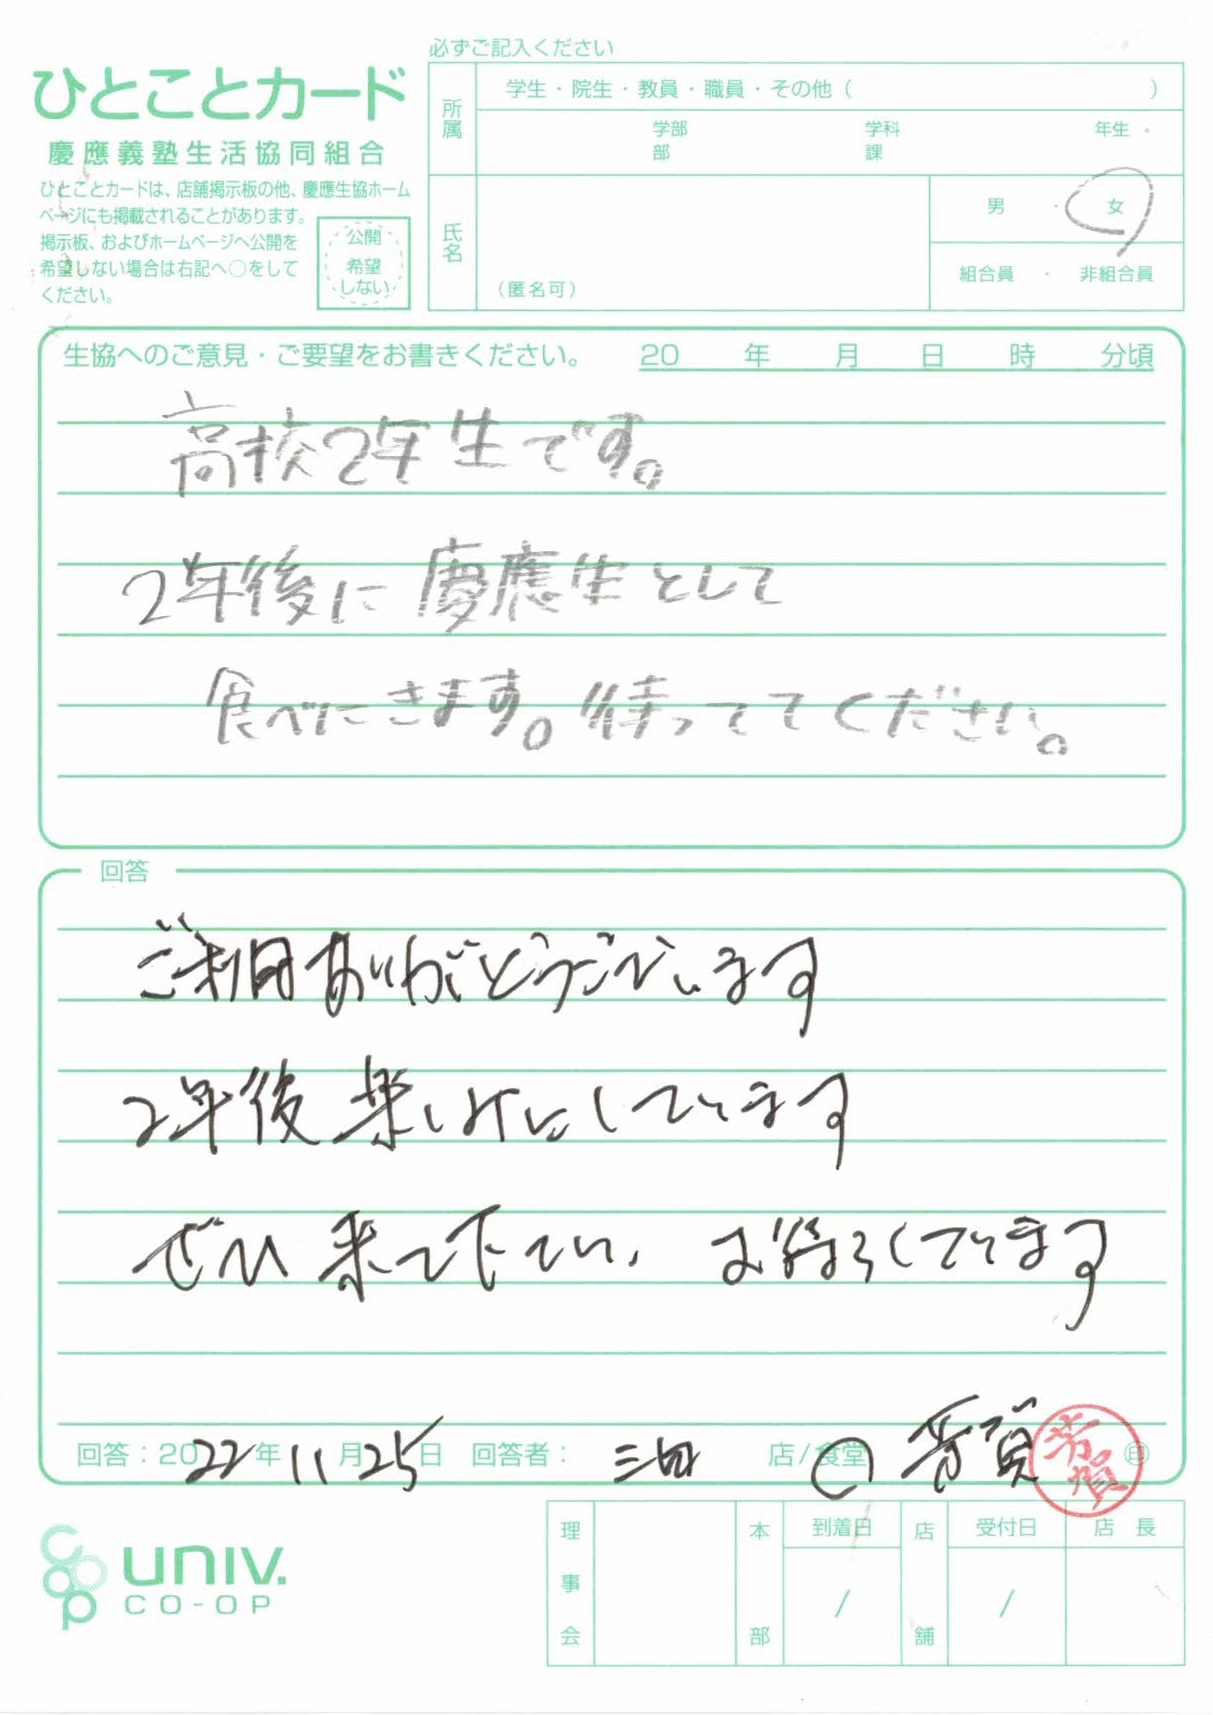 必ずご記入ください
ひとことカード
慶應義塾生活協同組合
ひとことカードは、店舗掲示板の他、慶應生協ホーム
ページにも掲載されることがあります。
掲示板、およびホームページへ公開を
希望しない場合は右記へ○をして
ください。
公開
希望
しない
所属
学生・院生・教員・職員・その他（　　）
学部 学科 年生
部 課
氏名
（匿名可）
男 ・ 女
組合員 ・ 非組合員
生協へのご意見・ご要望をお書きください。 20 年 月 日 時 分頃
高校2年生です。
2年後に慶應生として
食べにきます。待っててください。
回答
ご利用ありがとうございます
2年後楽しみにしています
ぜひ来て下さい、お待ちしています
回答：2022年11月25日 回答者： 三田 店/食堂 芳賀 芳賀 ㊞
univ.
CO-OP
理事会
本部
到着日
/
店舗
受付日
/
店長